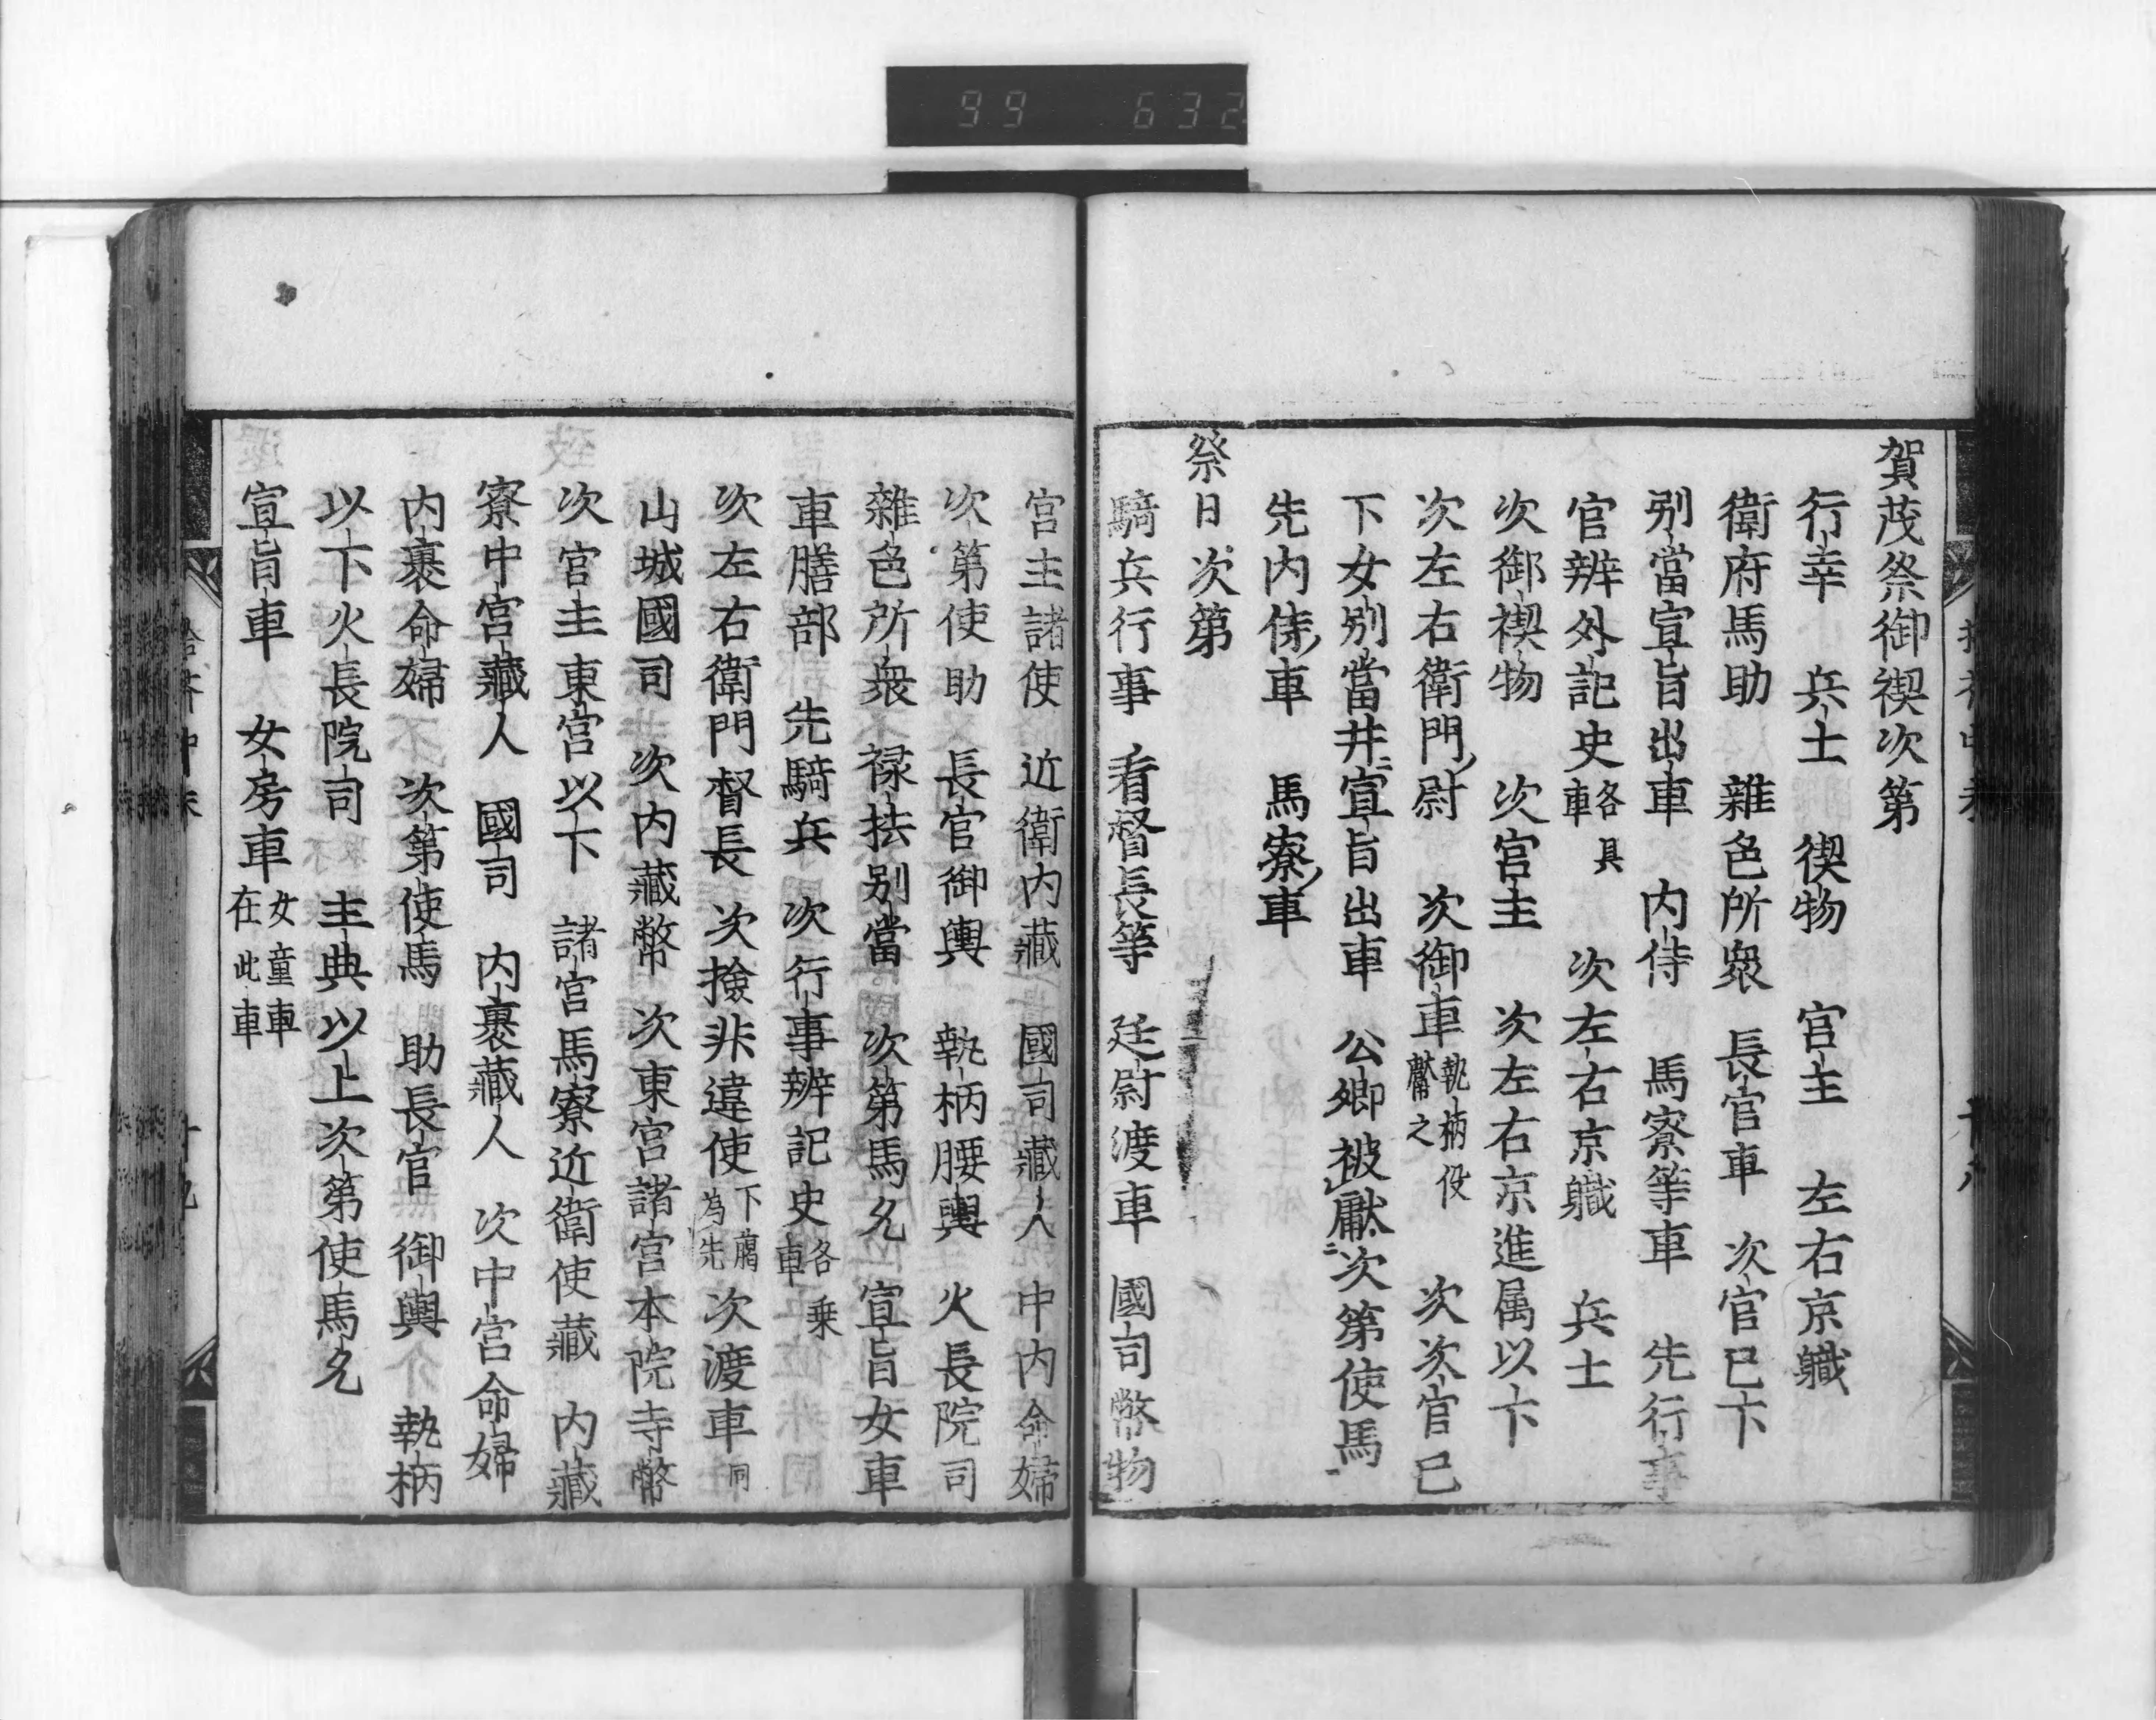 99 632
賀茂祭御禊次第
行幸 兵士 禊物 宮主 左右京職
衛府馬助 雜色所衆 長官車 次官已下
別當宣旨出車 内侍 馬寮等車 先行事
官辨外記史各具車 次左右京職 兵士
次御禊物 次宮主 次左右京進属以下
次左右衛門尉 次御車執柄役之 次次官已
下女別當井宣旨出車 公卿被 次第使馬
先内侍車 馬寮車
祭日次第
騎兵行事 看督長等 廷尉渡車 國司幣物
宮主諸使 近衛内藏 國司藏人 中内命婦
次第使助 長官御輿 執柄腰輿 火長院司
雜色所衆 禄抾別當 次第馬允 宣旨女車
車膳部 先騎兵 次行事辨記史各乗車
次左右衛門督長 次撿非違使下﨟為先 次渡車同
山城國司 次内藏幣 次東宮諸宮本院寺幣
次宮主東宮以下 諸宮馬寮近衛使藏 内藏
寮中宮藏人 國司 内裏藏人 次中宮命婦
内裏命婦 次第使馬 助長官 御輿 執柄
以下火長院司 主典以上次第使馬允
宣旨車 女房車女童車在此車